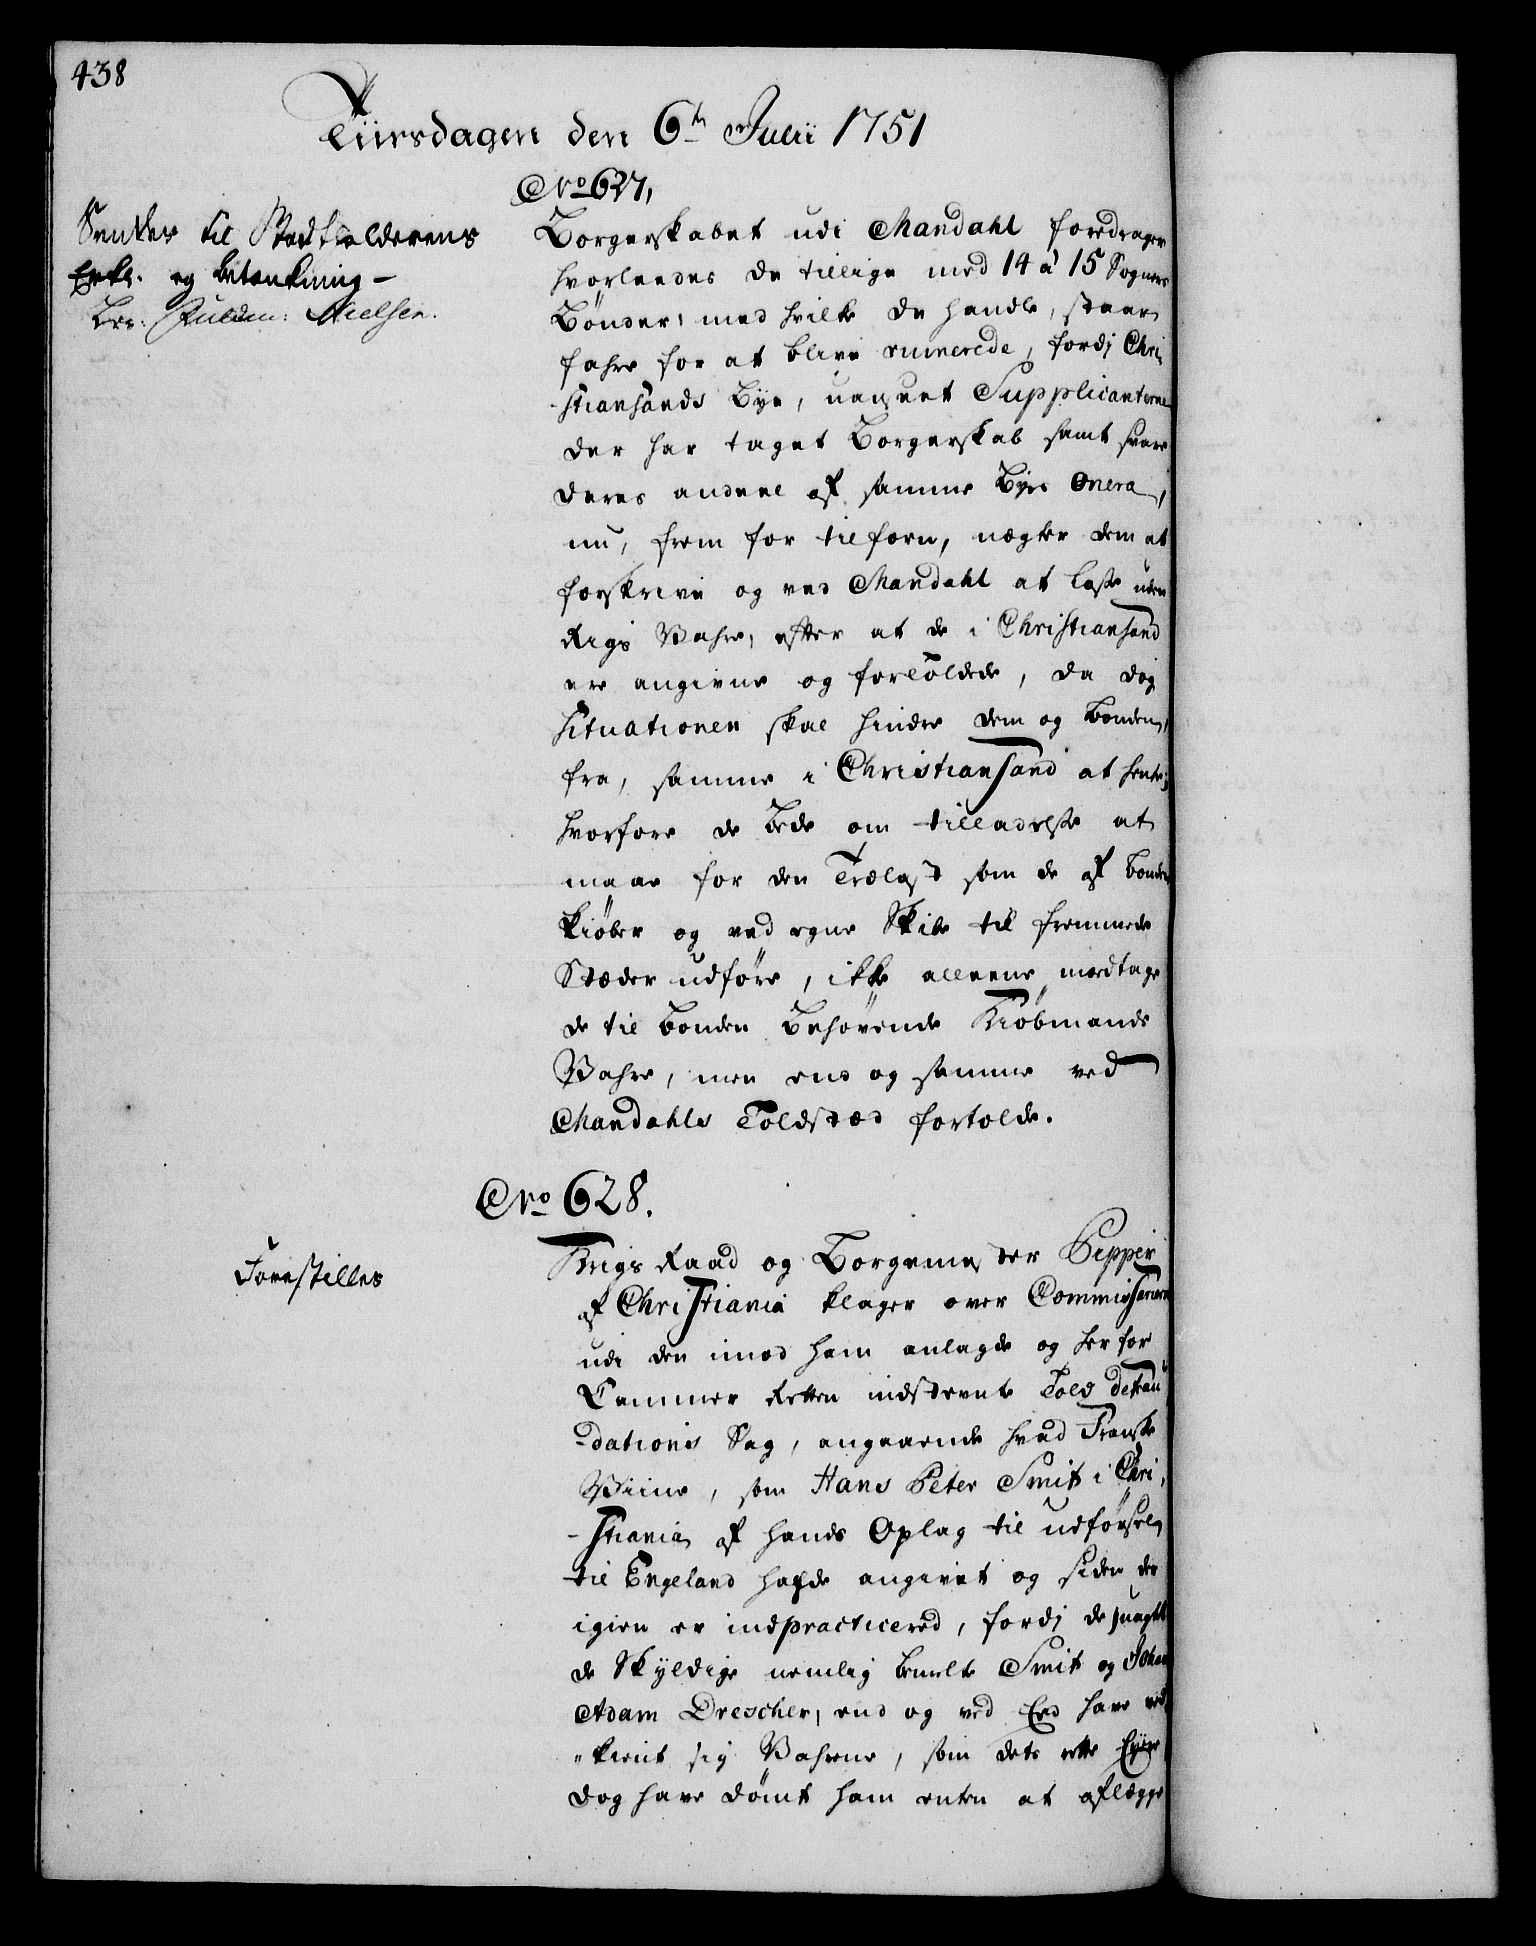 438
Tiirsdagen den 6te Julii 1751
No 627,
Sendes til Stadtholderens
Erkl. og betænkning -
Br. Nielsen.
Borgerskabet udi Mandahl foredrager
hvorledes de tillige med 14 à 15 Sogners
Bönder, med hvilke de handle, staar
fahre for at blive ruinerede, fordi Chri
stiansands Bye, uagtet Supplicanterne
der har taget Borgerskab samt svare
deres andeel af samme Byes Onera,
nu, frem for tilforn, nægter dem at
forskrive og ved Mandahl at losse uden
Rigs Vahre, efter at de i Christiansand
ere angivne og fortoldede, da dog
Situationen skal hindre dem og bonden,
fra, samme i Christiansand at hente;
hvorfore de bede om tilladelse at
maae for den Trælast som de af bonden
kiöber og med egne Skibe til fremmede
Stæder udföre, ikke alleene modtage
de til bonden behövende Kiöbmands
Vahre, men end og samme ved
Mandahls Toldsted fortolde.
No 628.
Forestilles
Krigs Raad og Borgemester Pepper
af Christiania klager over Commissarierne
udi den imod ham anlagde og her for
Cammer Retten indstevnte Told defrau
-dations Sag, angaaende hvad Franske
Viine, som Hans Peter Smit i Chri,
-stiania af hands Oplag til udförsel
til Engeland hafde angivet og siden der
igien er indpracticered, fordi de uagtet
de Skyldige nemlig bemelte Smit og Johan
Adam Drescher, end og ved Eed have ved
"kient sig Vahrene, som dets rette Eyere
dog have dömt ham enten at aflægge